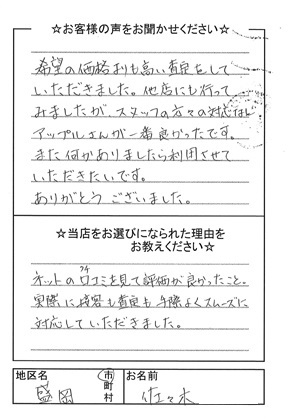 ☆お客様の声をお聞かせください☆
希望の価格よりも高い査定をして
いただきました。他店にも行って
みましたが、スタッフの方々の対応など
アップルさんが一番良かったです。
また何かありましたら利用させて
いただきたいです。
ありがとうございました。
☆当店をお選びになられた理由を
お教えください☆
ネットの口コミを見て評価が良かったこと。
クチ
実際に接客も査定も手際よくスムーズに
対応していただきました。
地区名
盛岡
市
町
村
お名前
佐々木